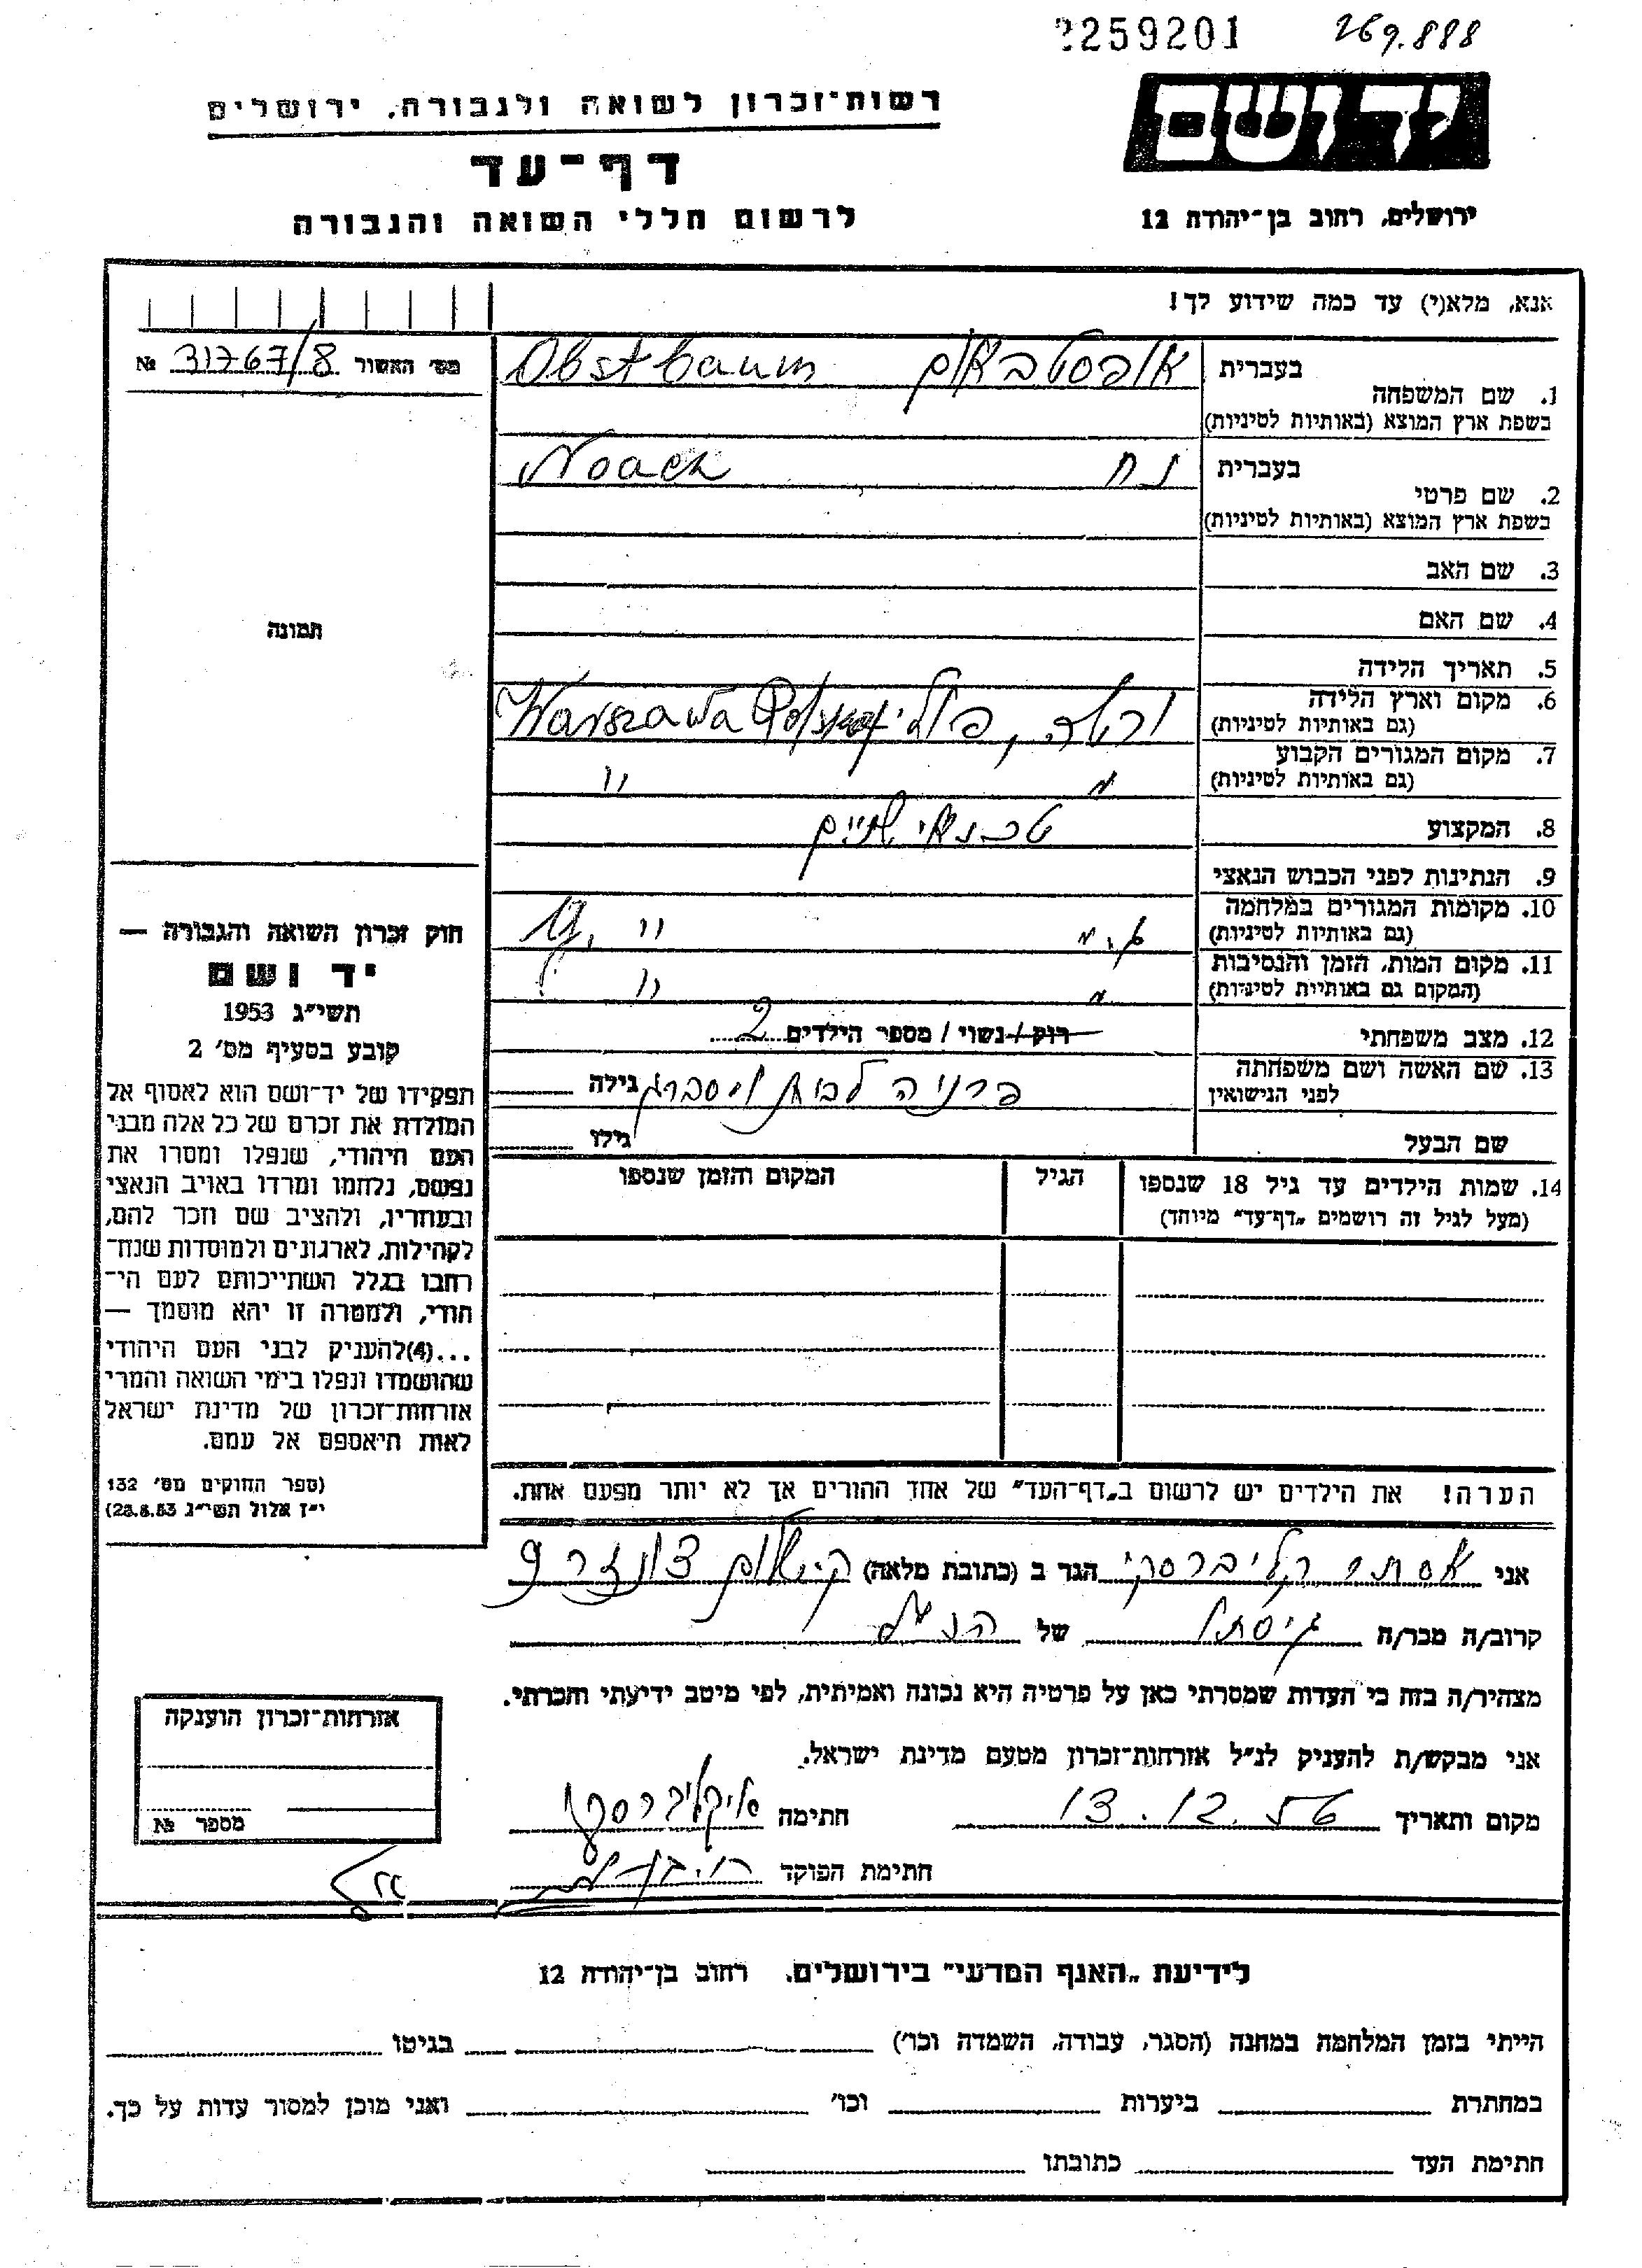 259201 269.888
יד ושם
רשות־זכרון לשואה ולגבורה, ירושלים
דף־עד
ירושלים, רחוב בן־יהודה 12
לרשום חללי השואה והגבורה
אנא, מלא(י) עד כמה שידוע לך!
מס׳ האשור 31767/8 №
1. שם המשפחה בעברית אובסטבאום Obstbaum
בשפת ארץ המוצא (באותיות לטיניות)
2. שם פרטי בעברית נח Noach
בשפת ארץ המוצא (באותיות לטיניות)
3. שם האב
4. שם האם
תמונה
5. תאריך הלידה
6. מקום וארץ הלידה
(גם באותיות לטיניות) ורשה, פולי Warszawa Polska
7. מקום המגורים הקבוע
(גם באותיות לטיניות) " "
8. המקצוע טכנאי שיניים
9. הנתינות לפני הכבוש הנאצי
10. מקומות המגורים במלחמה
(גם באותיות לטיניות)
11. מקום המות, הזמן והנסיבות
(המקום גם באותיות לטיניות)
12. מצב משפחתי רווק / נשוי / מספר הילדים 2
13. שם האשה ושם משפחתה
לפני הנישואין פרניה לבית ויסברג גילה
שם הבעל גילו
14. שמות הילדים עד גיל 18 שנספו הגיל המקום והזמן שנספו
(מעל לגיל זה רושמים „דף־עד" מיוחד)
הערה! את הילדים יש לרשום ב„דף־העד" של אחד ההורים אך לא יותר מפעם אחת.
חוק זכרון השואה והגבורה —
יד ושם
תשי״ג 1953
קובע בסעיף מס׳ 2
תפקידו של יד־ושם הוא לאסוף אל
המולדת את זכרם של כל אלה מבני
העם היהודי, שנפלו ומסרו את
נפשם, נלחמו ומרדו באויב הנאצי
ובעוזריו, ולהציב שם וזכר להם,
לקהילות, לארגונים ולמוסדות שנח־
רבו בגלל השתייכותם לעם הי־
הודי, ולמטרה זו יהא מוסמך —
...(4)להעניק לבני העם היהודי
שהושמדו ונפלו בימי השואה והמרי
אזרחות־זכרון של מדינת ישראל
לאות היאספם אל עמם.
(ספר החוקים מס׳ 132
י״ז אלול תשי״ג 28.8.53)
אני אסתר קליברסקי הגר ב (כתובת מלאה)
קרוב/ה מכר/ה גיסתו של הנ״ל
מצהיר/ה בזה כי העדות שמסרתי כאן על פרטיה היא נכונה ואמיתית, לפי מיטב ידיעתי והכרתי.
אני מבקש/ת להעניק לנ״ל אזרחות־זכרון מטעם מדינת ישראל.
מקום ותאריך 13.12.56 חתימה
חתימת הפוקד
אזרחות־זכרון הוענקה
מספר №
לידיעת „האגף המדעי" בירושלים. רחוב בן־יהודה 12
הייתי בזמן המלחמה במחנה (הסגר, עבודה, השמדה וכו׳) בגיטו
במחתרת ביערות וכו׳ ואני מוכן למסור עדות על כך.
חתימת העד כתובתו